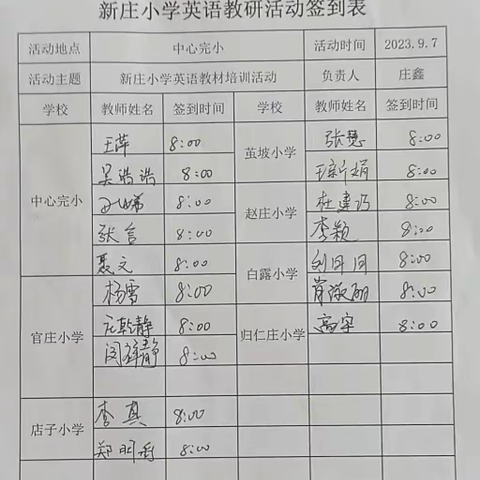 新庄小学英语教研活动签到表
活动地点 中心完小 活动时间 2023.9.7
活动主题 新庄小学英语教材培训活动 负责人 庄鑫
学校 教师姓名 签到时间 学校 教师姓名 签到时间
中心完小 王萍 8:00 茧坡小学 张慧 8:00
吴浩浩 8:00 王新娟 8:00
8:00 赵庄小学 杜建巧 8:00
张言 8:00 李颖 8:00
聂文 8:00 白露小学 刘月月 8:00
官庄小学 杨雪 8:00 肖淑丽 8:00
元乾静 8:00 归仁庄小学 高宇 8:00
闫静 8:00
店子小学 李真 8:00
郑明香 8:00